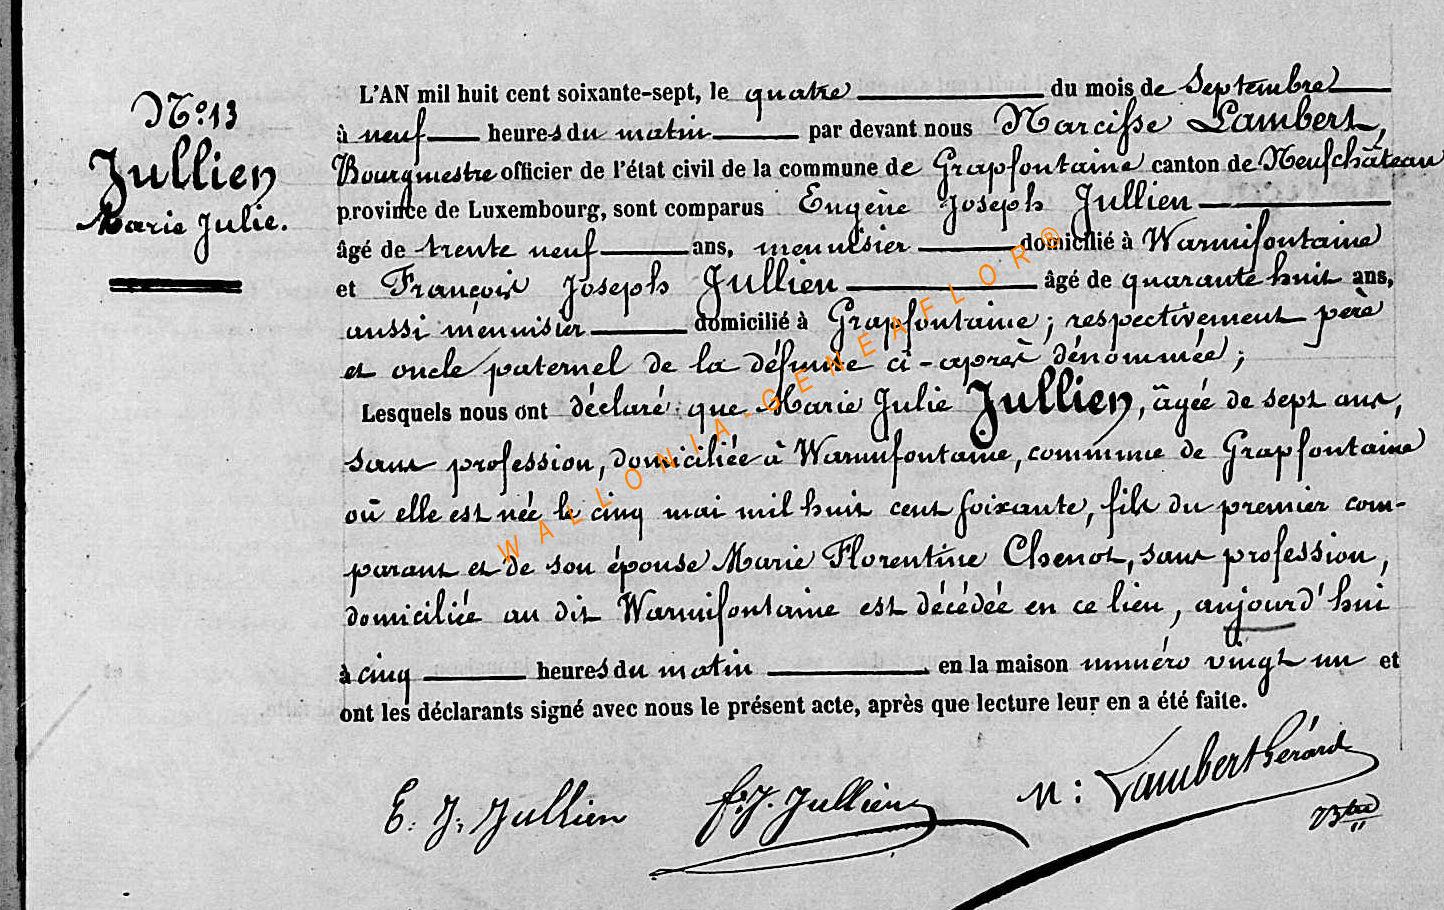 N.º 13
Jullien
Marie Julie.
L'AN mil huit cent soixante-sept, le quatre du mois de Septembre
à neuf heures du matin par devant nous Narcisse Lambert,
Bourgmestre officier de l'état civil de la commune de Grapfontaine canton de Neufchâteau
province de Luxembourg, sont comparus Eugène Joseph Jullien
âgé de trente neuf ans, menuisier domicilié à Warmifontaine
et François Joseph Jullien âgé de quarante huit ans,
aussi menuisier domicilié à Grapfontaine; respectivement père
et oncle paternel de la défunte ci-après dénommée;
Lesquels nous ont déclaré que Marie Julie Jullien, âgée de sept ans,
sans profession, domiciliée à Warmifontaine, commune de Grapfontaine
où elle est née le cinq mai mil huit cent soixante, fille du premier com-
parant et de son épouse Marie Florentine Chenot, sans profession,
domiciliée au dit Warmifontaine est décédée en ce lieu, aujourd'hui
à cinq heures du matin en la maison numéro vingt un et
ont les déclarants signé avec nous le présent acte, après que lecture leur en a été faite.
E. J. Jullien
f. J. Jullien
N: Lambert Gérard
Btre
WALLONIA-GENEAFLOR®